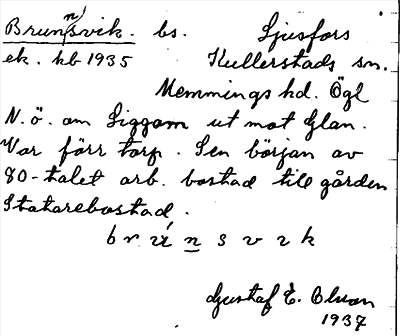 Brunnsvik. bs. Ljusfors
ek. hb 1935 Kullerstads sn.
Memmings hd. Ögl
N.ö. om Liggam ut mot Glan.
Var förr torp. Sen början av
80-talet arb. bostad till gården
Statarebostad.
b r u n s v i k
Gustaf E. Olson
1937